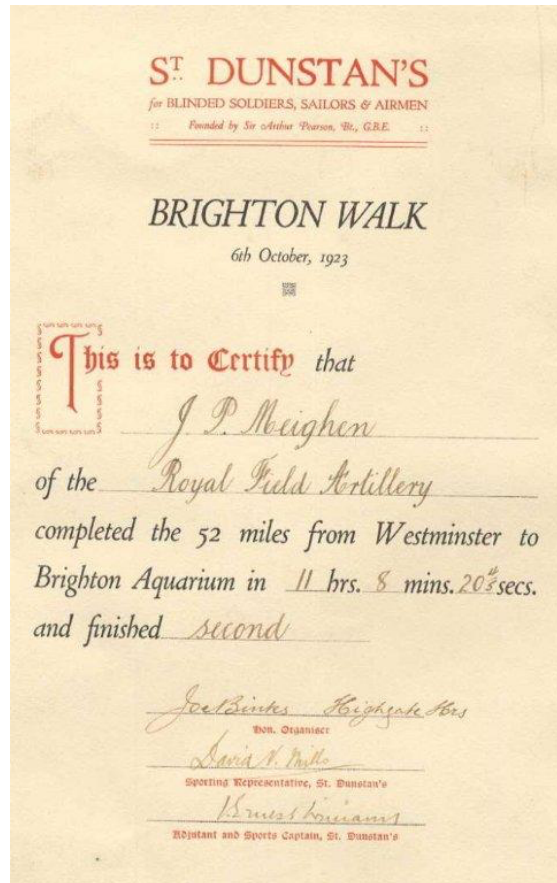 ST. DUNSTAN'S
for BLINDED SOLDIERS, SAILORS & AIRMEN
:: Founded by Sir Arthur Pearson, Bt., G.B.E. ::
BRIGHTON WALK
6th October, 1923
This is to Certify that
J. P. Meighen
of the Royal Field Artillery
completed the 52 miles from Westminster to
Brighton Aquarium in 11 hrs. 8 mins. 20 4/5 secs.
and finished second
Joe Binks Highgate Hrs
Hon. Organiser
David N. Mills
Sporting Representative, St. Dunstan's
Ernest Williams
Adjutant and Sports Captain, St. Dunstan's